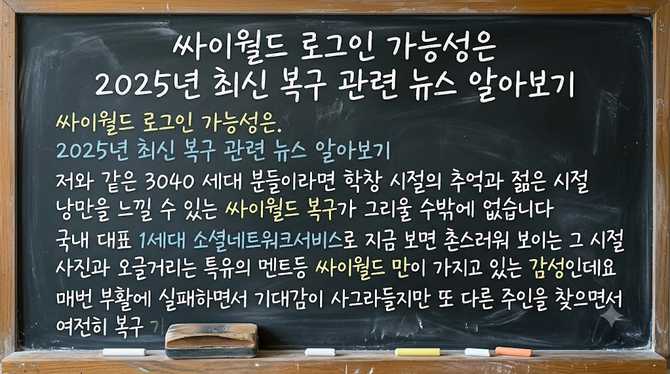 싸이월드 로그인 가능성은
2025년 최신 복구 관련 뉴스 알아보기
싸이월드 로그인 가능성은.
2025년 최신 복구 관련 뉴스 알아보기
저와 같은 3040 세대 분들이라면 학창 시절의 추억과 젊은 시절
낭만을 느낄 수 있는 싸이월드 복구가 그리울 수밖에 없습니다
국내 대표 1세대 소셜네트워크서비스로 지금 보면 촌스러워 보이는 그 시절
사진과 오글거리는 특유의 멘트등 싸이월드 만이 가지고 있는 감성인데요
매번 부활에 실패하면서 기대감이 사그라들지만 또 다른 주인을 찾으면서
여전히 복구